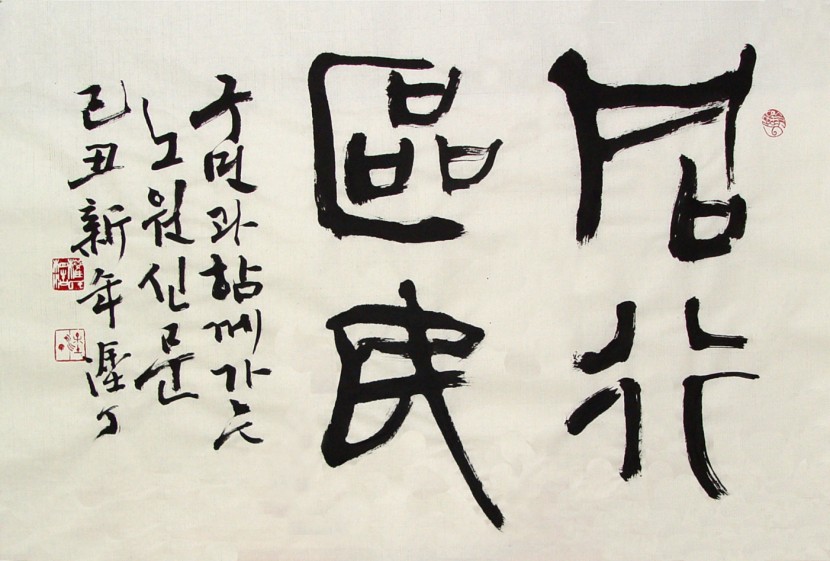 同行
區民
구민과함께가는
노원신문
己丑新年